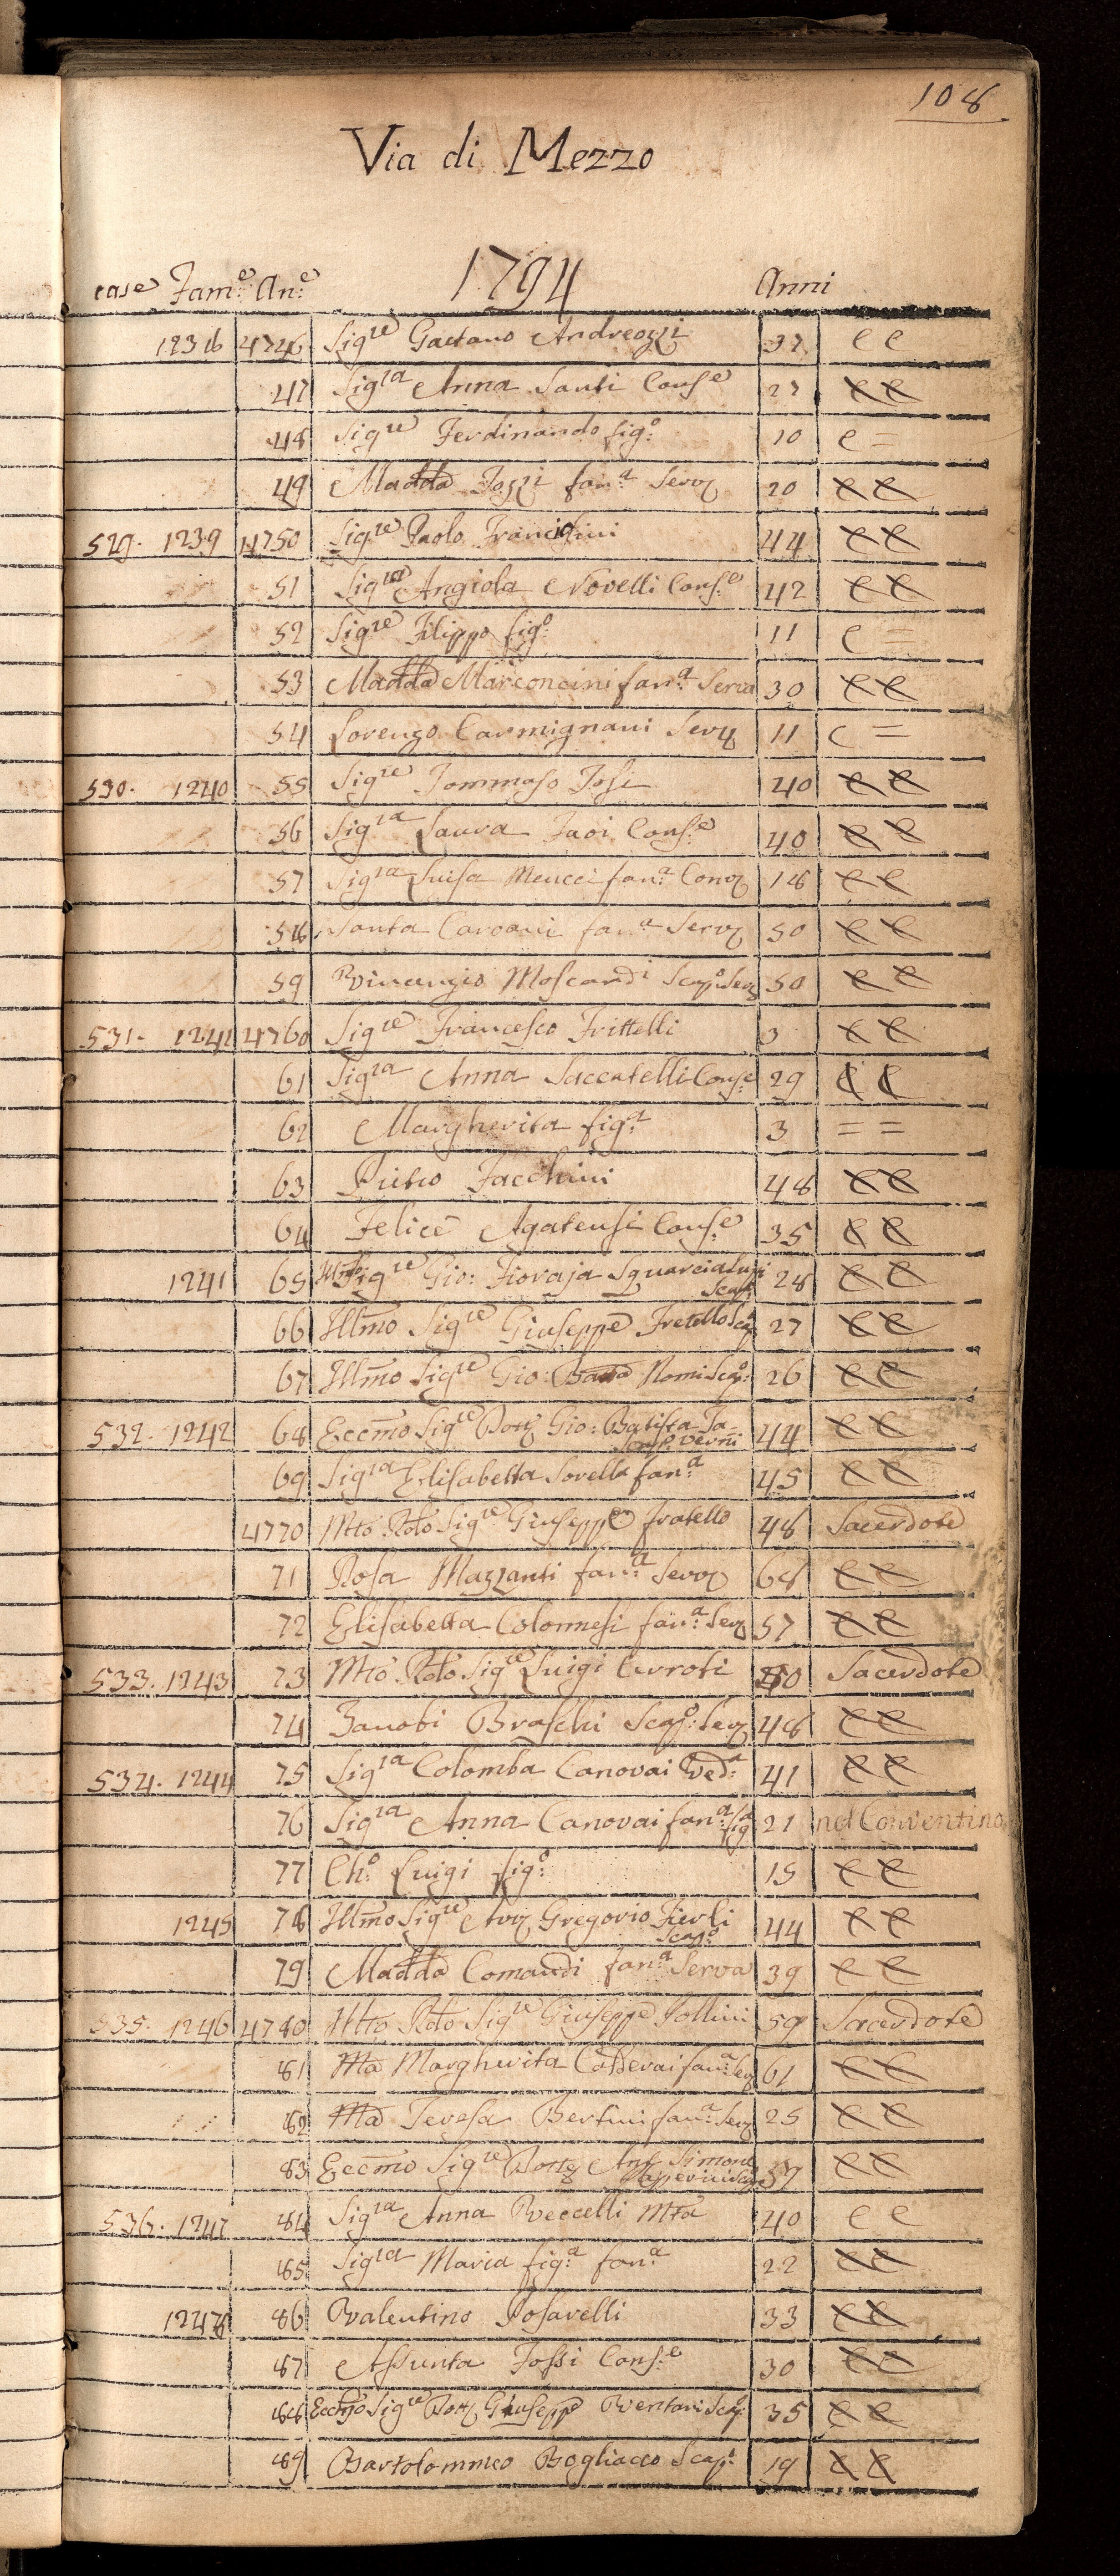 108
Via di Mezzo
1794
case Fam:e An:e Anni
1238 4746 Sigre Gaetano Andreozzi 37 C C
47 Sigra Anna Santi Conse 27 C C
48 Sigre Ferdinando figo: 10 C =
49 Madda Tozzi fan:a Serv 20 C C
529. 1239 4750 Sigre Paolo Francolini 44 C C
51 Sigra Angiola Novelli Cons:e 42 C C
52 Sigre Filippo figo: 11 C =
53 Madda Marconcini fan:a Serva 30 C C
54 Lorenzo Carmignani Serv 11 C =
530. 1240 55 Sigre Tommaso Tosi 40 C C
56 Sigra Laura Cons:e 40 C C
57 Sigra Luisa Meucci fan:a Conv 18 C C
58 Santa fan:a Serv 50 C C
59 Vincenzio Moscardi Scap:o Serv 50 C C
531. 1241 4760 Sigre Francesco Frittelli 3 C C
61 Sigra Anna Saccatelli Cons:e 29 C C
62 Margherita fig:a 3 = =
63 Pietro Facchini 48 C C
64 Felice Agatensi Cons:e 35 C C
1241 65 Illmo Sigre Gio: Fioraja Squarcialupi
Scap: 28 C C
66 Illmo Sigre Giuseppe Fratello Scap 27 C C
67 Illmo Sigre Gio: Batta Nomi Scap:o 26 C C
532. 1242 68 Eccmo Sigre Dott Gio: Batista Ta-
Scap:o verni 44 C C
69 Sigra Elisabetta Sorella fan:a 45 C C
4770 Mto Rdo Sigre Giuseppe fratello 48 Sacerdote
71 Rosa Mazzanti fan:a Serv 68 C C
72 Elisabetta Colonnesi fan:a Serv 57 C C
533. 1243 73 Mto Rdo Sigre Luigi Curroti 50 Sacerdote
74 Zanobi Braschi Scap:o Serv 48 C C
534. 1244 75 Sigra Colomba Canovai Ved:a 41 C C
76 Sigra Anna Canovai fan:a figa 21 nel Conventino
77 Cho: Luigi figo: 15 C C
1245 78 Illmo Sigre Avv Gregorio Fierli
Scapo: 44 C C
79 Madda Comandi fan:a Serva 39 C C
535. 1246 4780 Mto Rdo Sigre Giuseppe Pollini 59 Sacerdote
81 Ma Margherita fan:a Serv 61 C C
82 Ma Teresa Bertini fan:a Serv 25 C C
83 Eccmo Sigre Dott Ant Simone
37 C C
536. 1247 84 Sigra Anna Veccelli Mta 40 C C
85 Sigra Maria fig:a fan:a 22 C C
1248 86 Valentino Rosavelli 33 C C
87 Assunta Fossi Cons:e 30 C C
88 Eccmo Sigre Dott Giuseppe Venturi Scap: 35 C C
89 Bartolommeo Bogliacco Scap: 19 C C